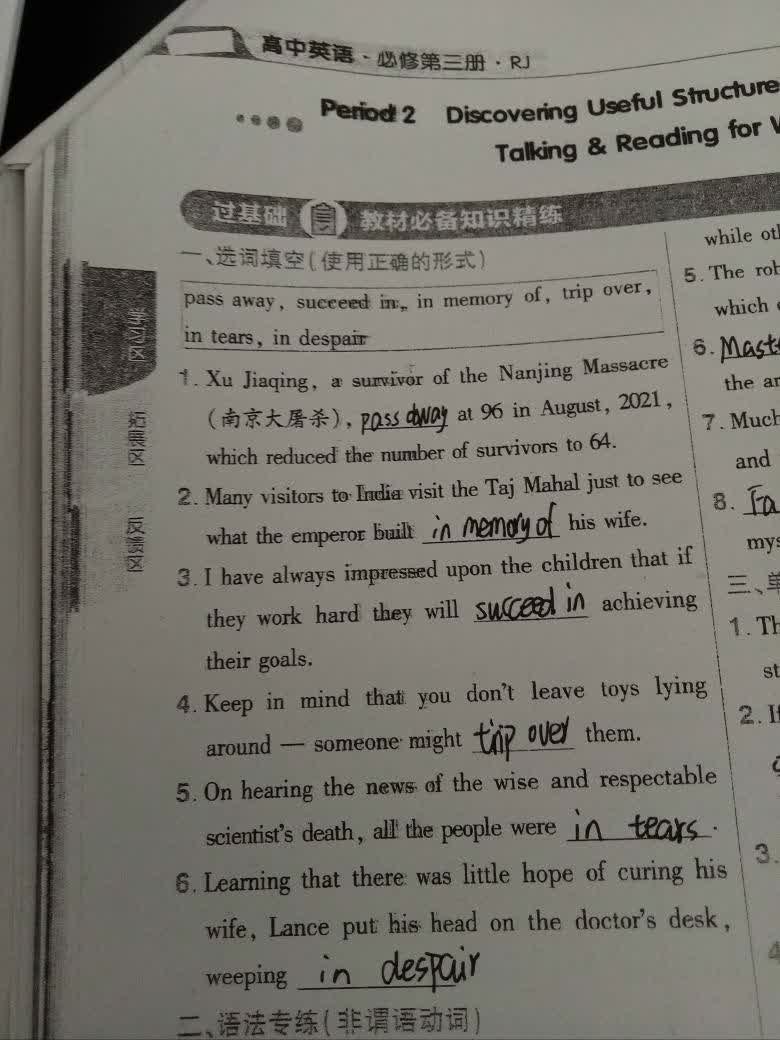 高中英语·必修第三册·RJ
Period 2 Discovering Useful Structure
Talking & Reading for
过基础 教材必备知识精练
一、选词填空(使用正确的形式)
pass away, succeed in, in memory of, trip over,
in tears, in despair
1. Xu Jiaqing, a survivor of the Nanjing Massacre
(南京大屠杀), pass away at 96 in August, 2021,
which reduced the number of survivors to 64.
2. Many visitors to India visit the Taj Mahal just to see
what the emperor built in memory of his wife.
3. I have always impressed upon the children that if
they work hard they will succeed in achieving
their goals.
4. Keep in mind that you don't leave toys lying
around — someone might trip over them.
5. On hearing the news of the wise and respectable
scientist's death, all the people were in tears.
6. Learning that there was little hope of curing his
wife, Lance put his head on the doctor's desk,
weeping in despair
二、语法专练(非谓语动词)
while
5. The
which
6.
the
7. Much
and
8.
三、
1.
2.
3.
4
拓展区